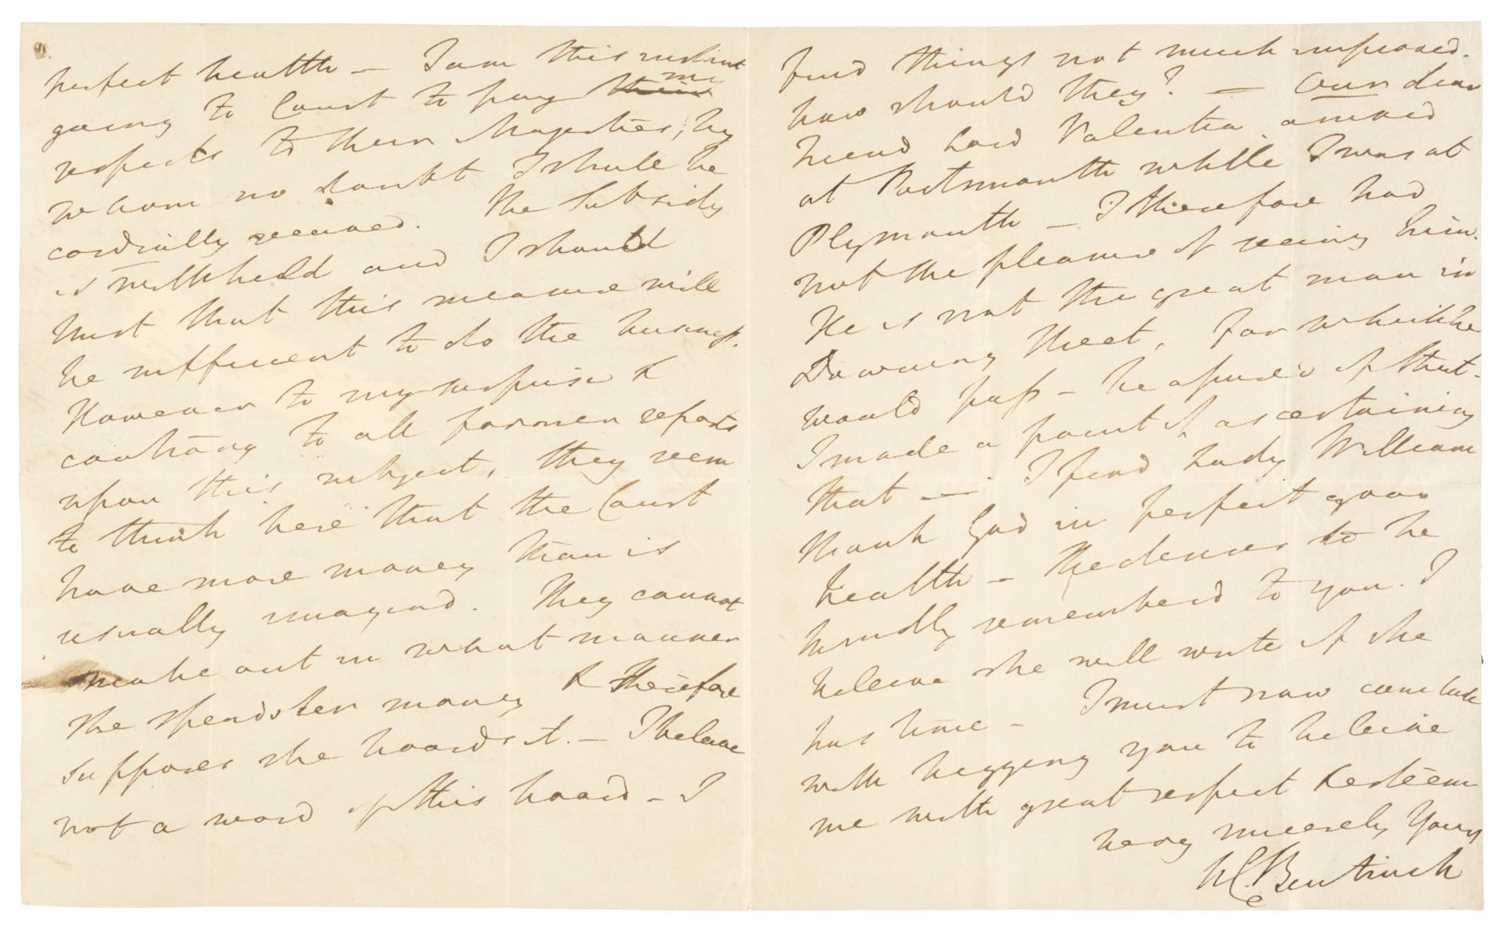 perfect health — I am this instant
going to Court to pay ~~their~~ my
respects to their Majesties, by
whom no doubt I shall be
cordially received. The Subsidy
is withheld and I should
trust that this measure will
be sufficient to do the business.
However to my surprise &
contrary to all former reports
upon this subject, they seem
to think here that the Court
have more money than is
usually imagined. They cannot
make out in what manner
she spends her money & therefore
supposes she hoards it. — I believe
not a word of this hoard — I
find things not much improved.
how should they? — Our dear
friend Lord Valentia arrived
at Portsmouth while I was at
Plymouth — I therefore had
not the pleasure of seeing him.
He is not the great man in
Downing Street, for which he
would pass — be assured of that.
I made a point of ascertaining
that — I find Lady William
thank God in perfect good
health — She desires to be
kindly remembered to you. I
believe she will write if she
has time — I must now conclude
with begging you to believe
me with great respect & esteem
very sincerely Yours
W C Bentinck